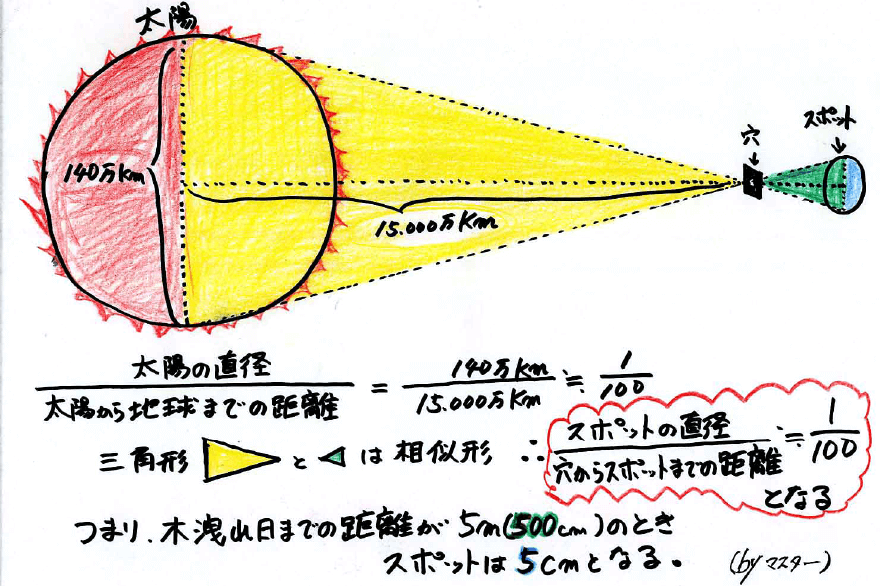 太陽
穴
スポット
140万km
15.000万Km
太陽の直径 / 太陽から地球までの距離 = 140万Km / 15.000万Km ≒ 1 / 100
三角形 と は 相似形 ∴ スポットの直径 / 穴からスポットまでの距離 ≒ 1 / 100
となる
つまり、木洩れ日までの距離が 5m(500cm)のとき
スポットは 5cmとなる。 (by マスター)